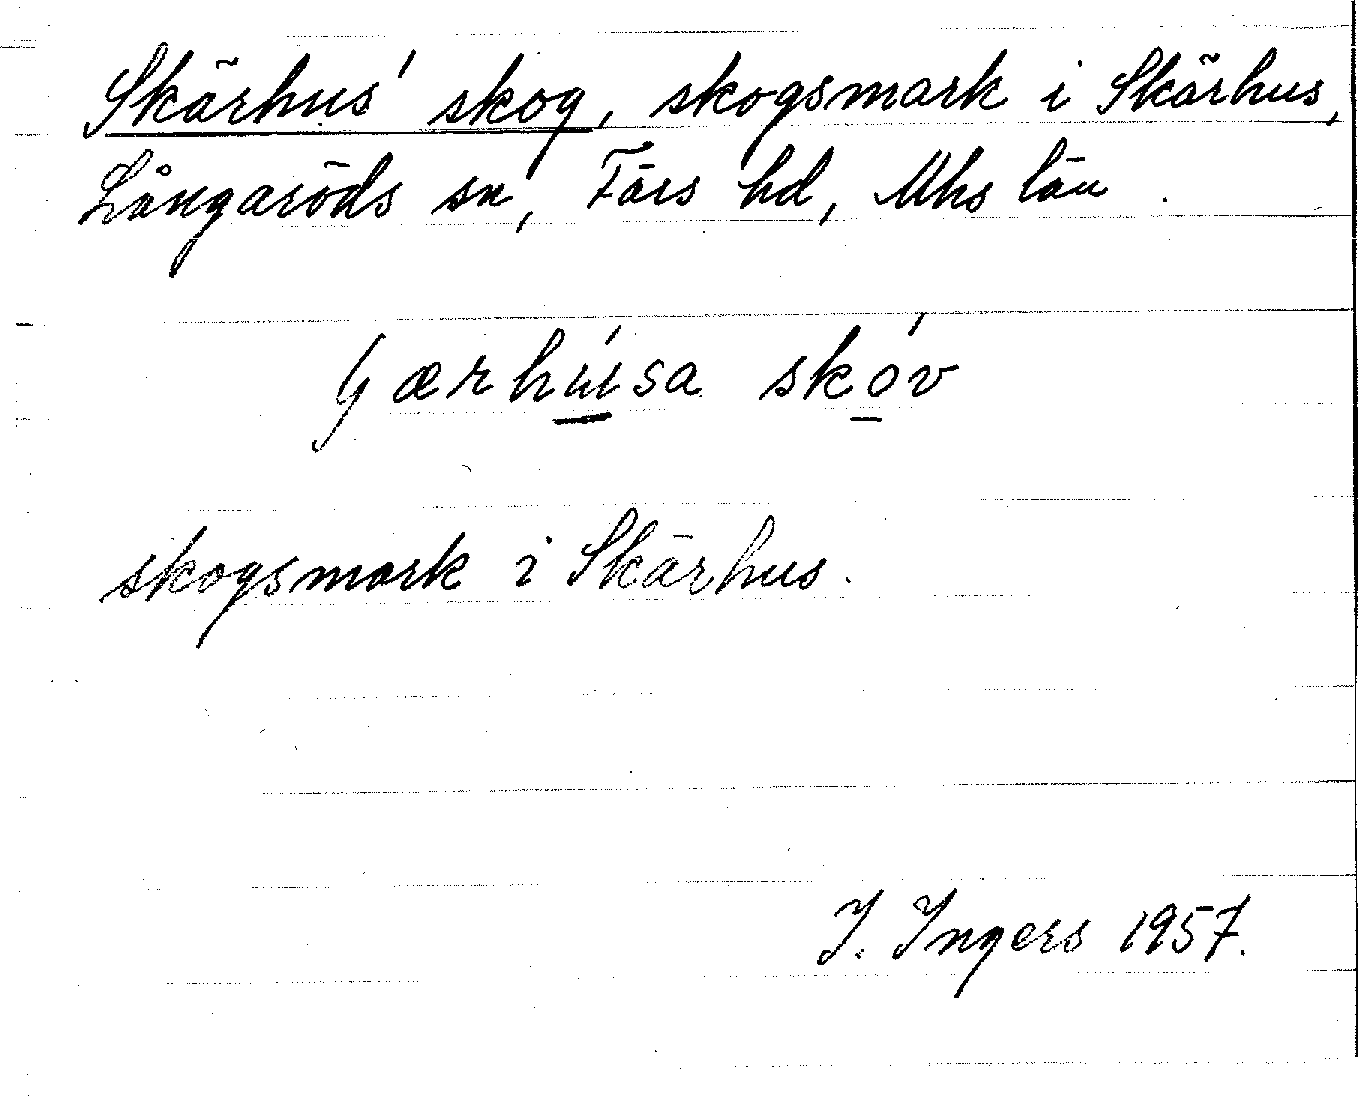 Skärhus' skog, skogsmark i Skärhus,
Långaröds sn, Färs hd, Mhs län.
ʃærhúsa skóv
skogsmark i Skärhus.
I. Ingers 1957.